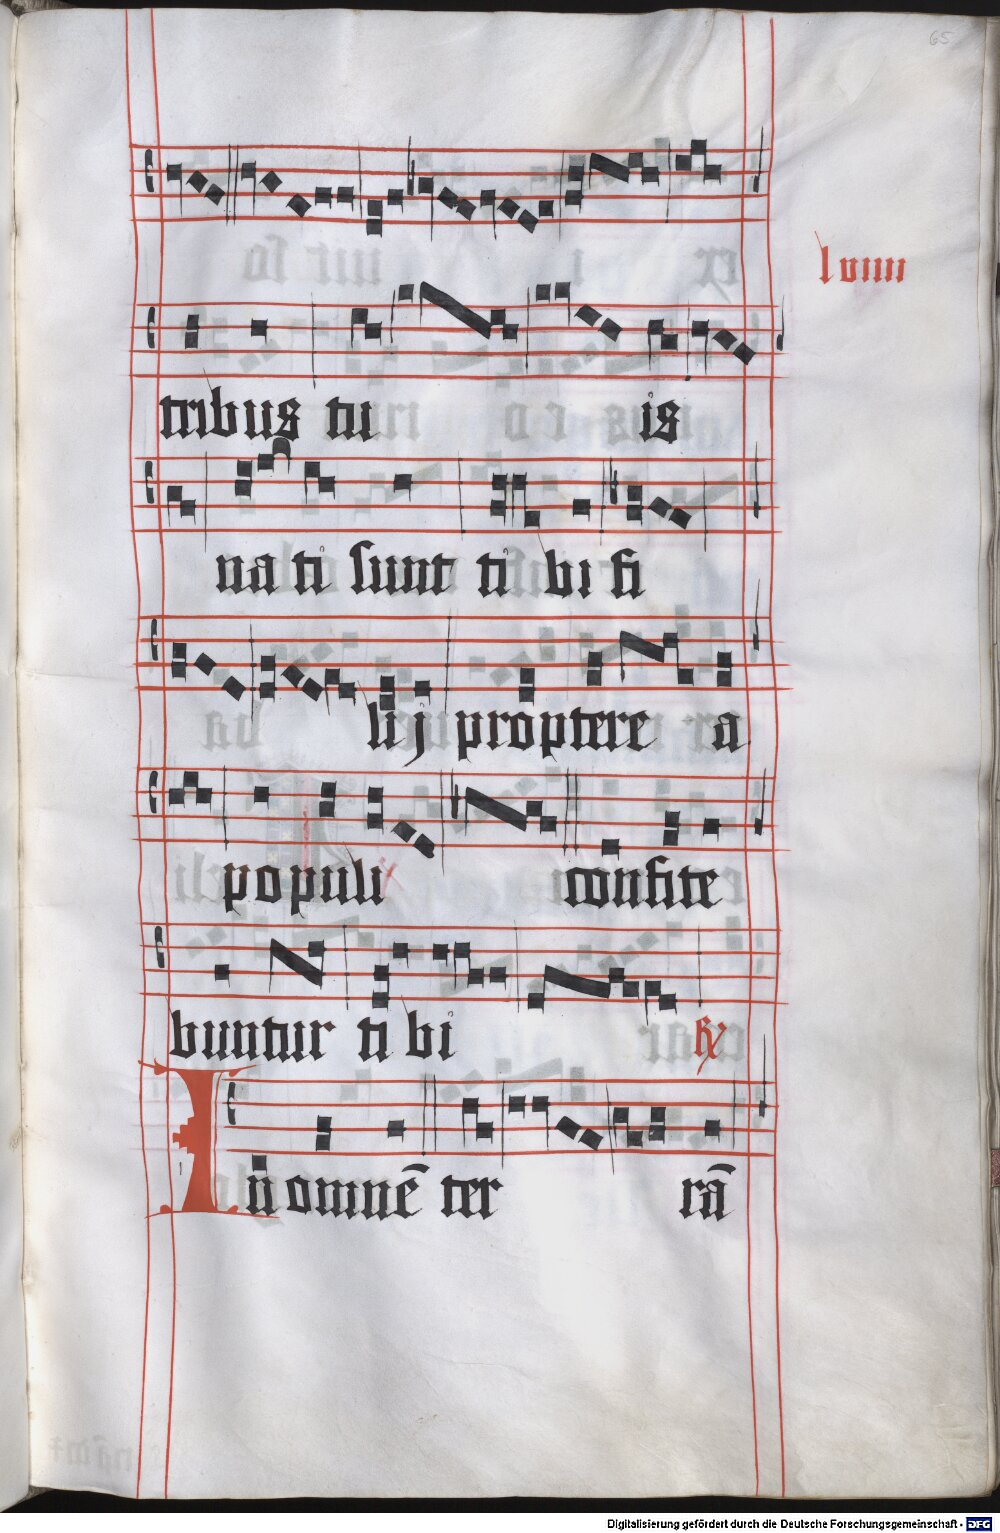 65
lviiii
tribus tu is
na ti sunt ti bi fi
lij proptere a
populi confite
buntur ti bi ℟
In omnē ter rā
Digitalisierung gefördert durch die Deutsche Forschungsgemeinschaft - DFG